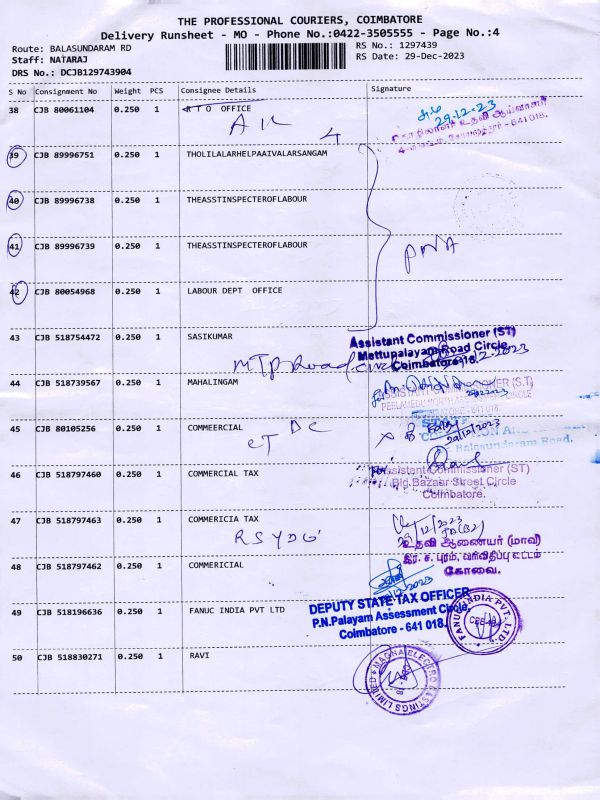 THE PROFESSIONAL COURIERS, COIMBATORE
Delivery Runsheet - MO - Phone No.:0422-3505555 - Page No.:4
Route: BALASUNDARAM RD
RS No.: 1297439
Staff: NATARAJ
RS Date: 29-Dec-2023
DRS No.: DCJB129743904
S No Consignment No Weight PCS Consignee Details Signature
38 CJB 80061104 0.250 1 RTO OFFICE
29-12-23
உதவி ஆய்வாளர்
641 018.
4
39 CJB 89996751 0.250 1 THOLILALARHELPAAIVALARSANGAM
40 CJB 89996738 0.250 1 THEASSTINSPECTEROFLABOUR
41 CJB 89996739 0.250 1 THEASSTINSPECTEROFLABOUR
42 CJB 80054968 0.250 1 LABOUR DEPT OFFICE
43 CJB 518754472 0.250 1 SASIKUMAR
Assistant Commissioner (ST)
Mettupalayam Road Circle
Coimbatore-18.
MTP Road
44 CJB 518739567 0.250 1 MAHALINGAM
45 CJB 80105256 0.250 1 COMMEERCIAL
29/12/2023
Balasundaram Road,
46 CJB 518797460 0.250 1 COMMERCIAL TAX
Assistant Commissioner (ST)
Big Bazaar Street Circle
Coimbatore.
47 CJB 518797463 0.250 1 COMMERICIA TAX
29/12/2023
உதவி ஆணையர் (மாவ)
கோவை.
48 CJB 518797462 0.250 1 COMMERICIAL
DEPUTY STATE TAX OFFICER
P.N.Palayam Assessment Circle,
Coimbatore - 641 018.
49 CJB 518196636 0.250 1 FANUC INDIA PVT LTD
FANUC INDIA PVT. LTD.
50 CJB 518830271 0.250 1 RAVI
MAGNA ELECTRO CASTINGS LIMITED